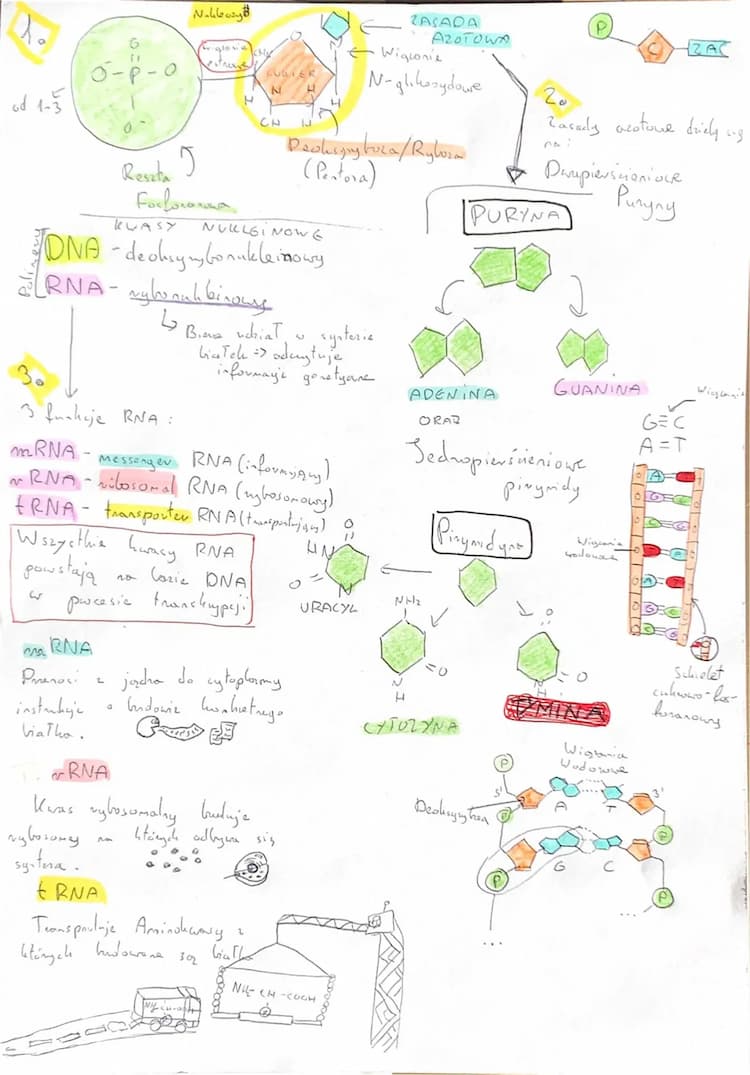 1.
Nukleozyd
od 1-3
O
O⁻ – P – O
O⁻
Wiązanie
estrowe
CH₂
O
CUKIER
N
H
H
H
H
H
OH
ZASADA
AZOTOWA
Wiązanie
N-glikozydowe
Deoksyryboza/Ryboza
(Pentoza)
Reszta
Fosforanowa
P
C
ZA
2.
Zasady azotowe dzielą się
na:
Dwupierścieniowe
Puryny
PURYNA
ADENINA
GUANINA
ORAZ
Jednopierścieniowe
pirymidy
Pirymidyna
O
HN
O
N
URACYL
NH₂
O
N
H
CYTOZYNA
O
O
N
H
TYMINA
KWASY NUKLEINOWE
Polimery
DNA - deoksyrybonukleinowy
RNA - rybonukleinowy
Bierze udział w syntezie
białek => odczytuje
informacje genetyczne
3.
3 funkcje RNA:
mRNA - messenger RNA (informujący)
rRNA - ribosomal RNA (rybosomowy)
tRNA - transporter RNA (transportujący)
Wszystkie kwasy RNA
powstają na bazie DNA
w procesie transkrypcji.
mRNA
Przenosi z jądra do cytoplazmy
instrukcje o budowie konkretnego
białka.
rRNA
Kwas rybosomalny buduje
rybosomy na których odbywa się
synteza.
tRNA
Transportuje Aminokwasy z
których budowane są białka
NH₂-CH-COOH
NH₂-CH-COOH
Wiązania
G≡C
A=T
Wiązania
wodorowe
A
G
C
G
C
A
A
G
C
G
C
Szkielet
cukrowo-fos-
foranowy
Wiązania
Wodorowe
P
5'
3'
Deoksyryboza
A
T
P
P
G
C
P
P
...
...